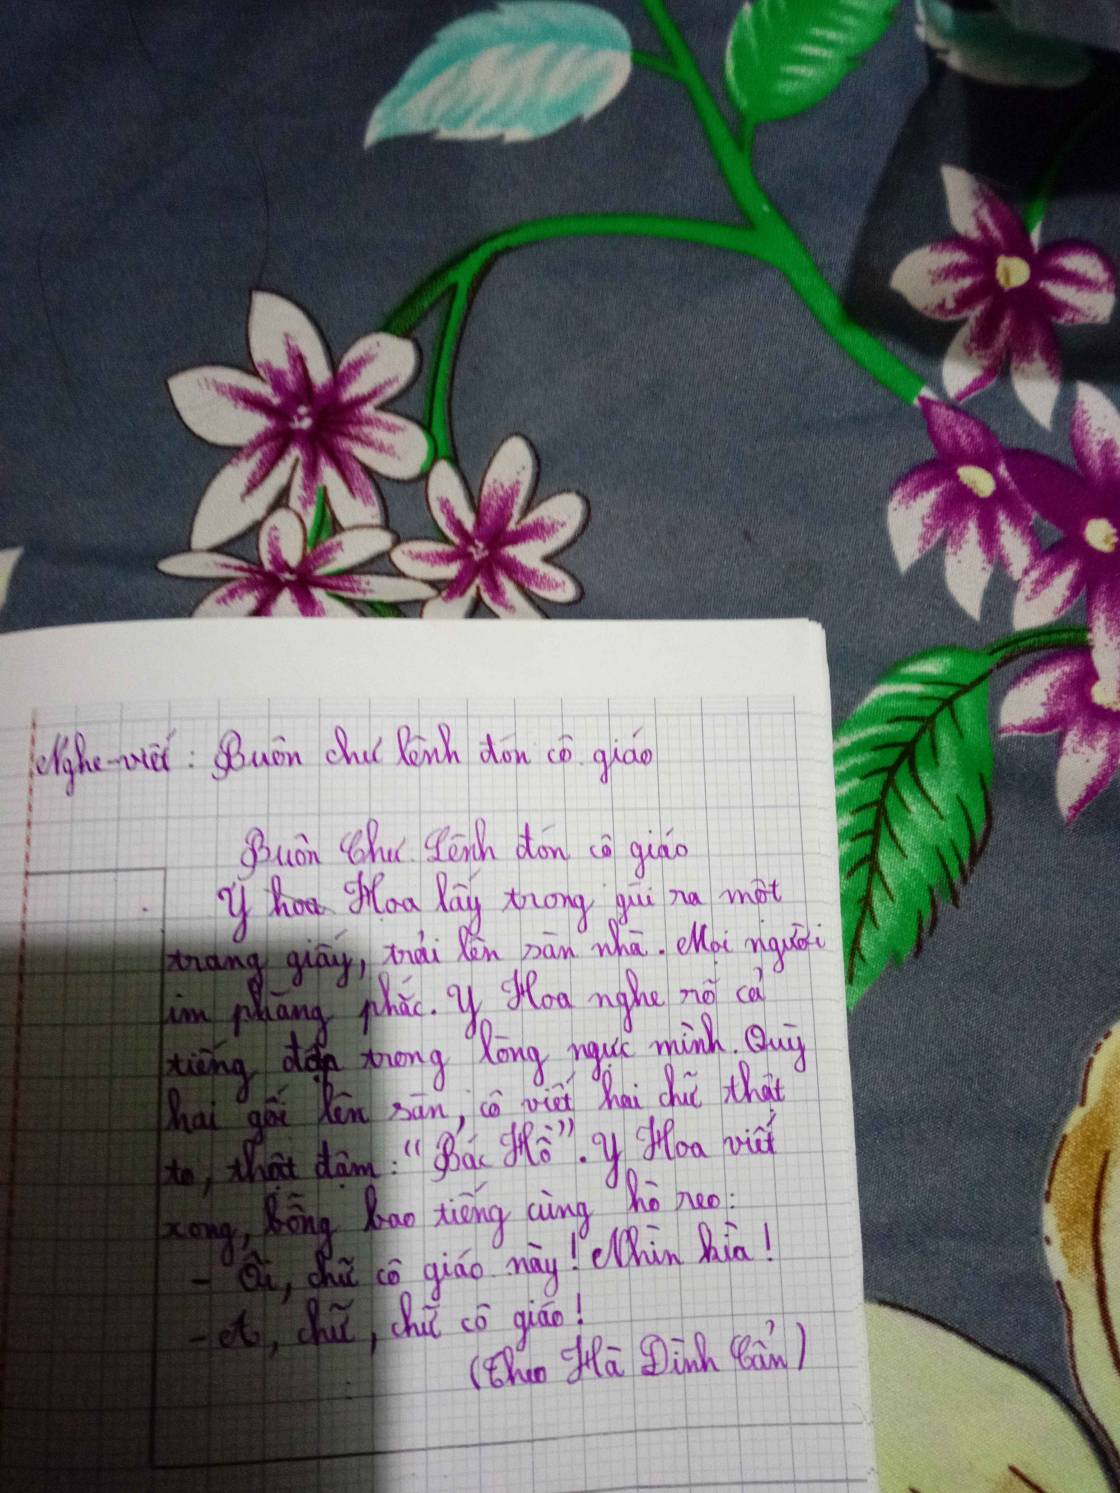 Nghe-viết: Buôn chư lênh đón cô giáo
Buôn Chư Lênh đón cô giáo
Y hoa Hoa lấy trong gùi ra một
trang giấy, trải lên sàn nhà. Mọi người
im phăng phắc. Y Hoa nghe rõ cả
tiếng đập trong lồng ngực mình. Quỳ
hai gối lên sàn, cô viết hai chữ thật
to, thật đậm: "Bác Hồ". Y Hoa viết
xong, bỗng bao tiếng cùng hò reo:
- Ôi, chữ cô giáo này! Nhìn kìa!
- A, chữ, chữ cô giáo!
(Theo Hà Đình Cẩn)